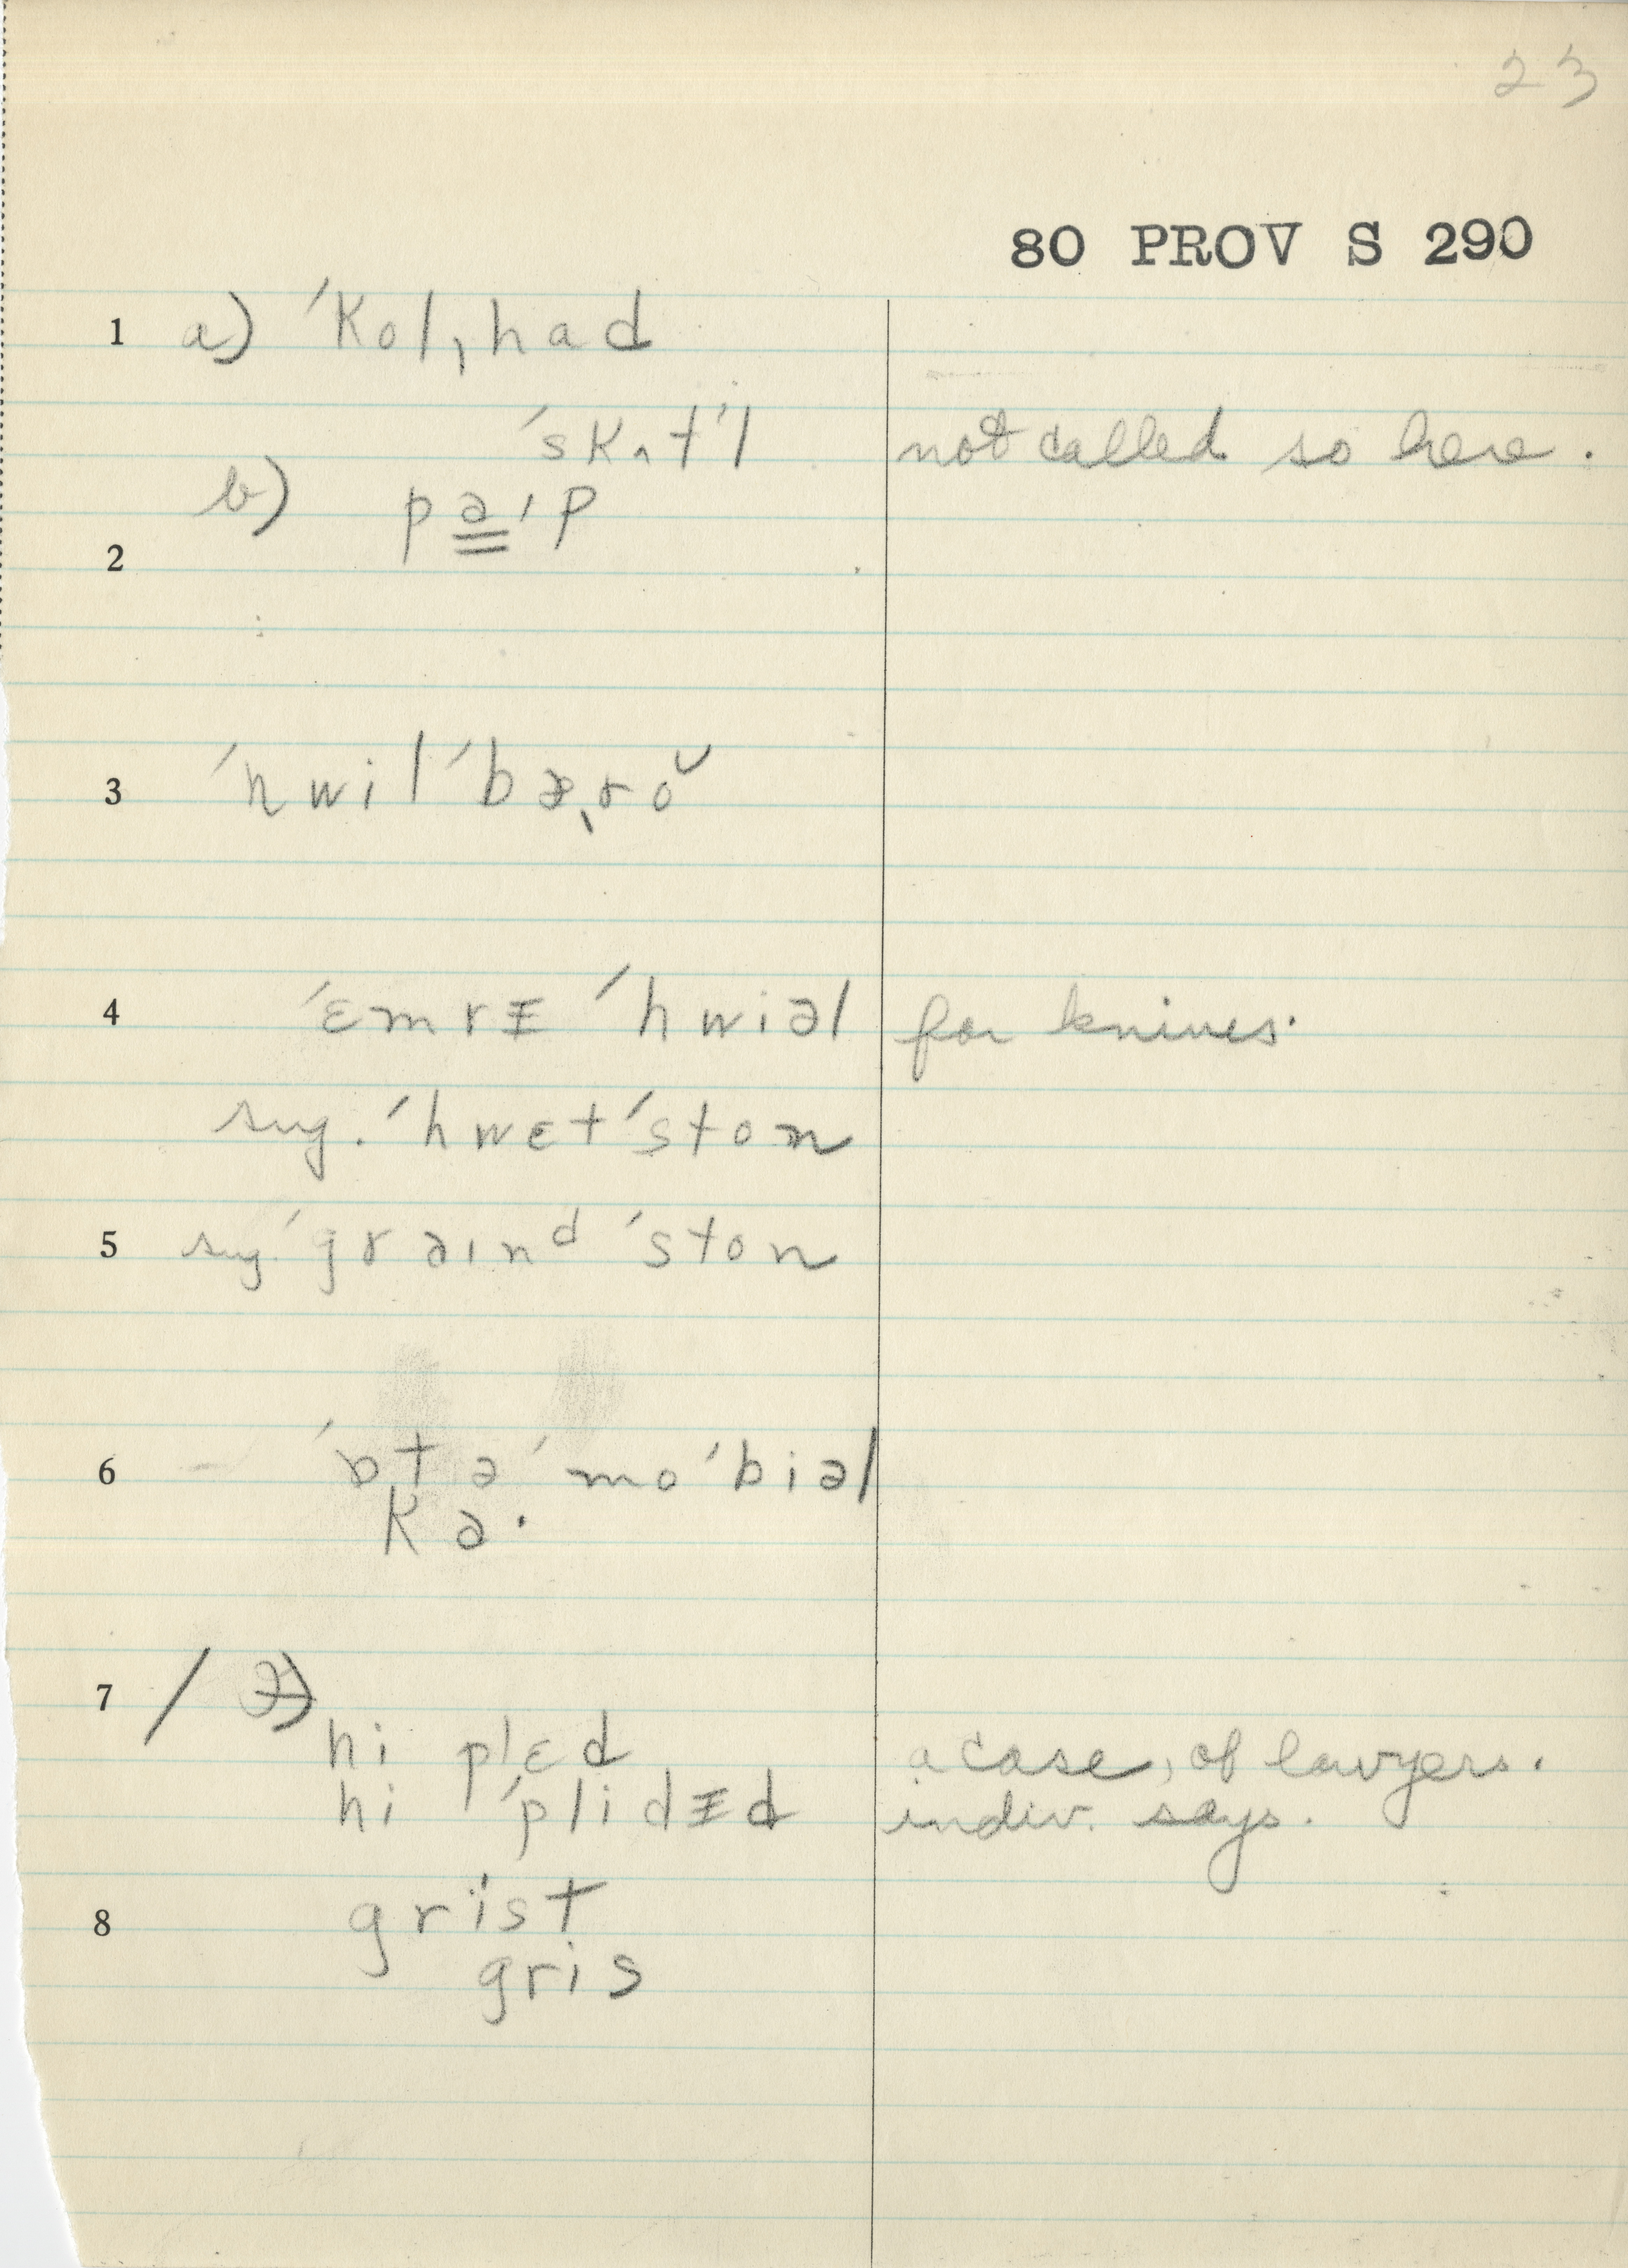 23
80 PROV S 290
1 a) ˈkolˌhad
ˈskʌtˈl not called so here.
b) pa̳ˈp
2
3 ˈhwilˈbæˌrŏ
4 ˈɛmrɪ ˈhwiəl for knives.
sug. ˈhwɛtˈston
5 sug. ˈgraɪnᵈ ˈston
6 ˈɒtəˈmoˈbiəl
ka·
7 /
hi plɛd a case, of lawyers.
hi ˈplidɪd indiv. says.
8 grist
gris